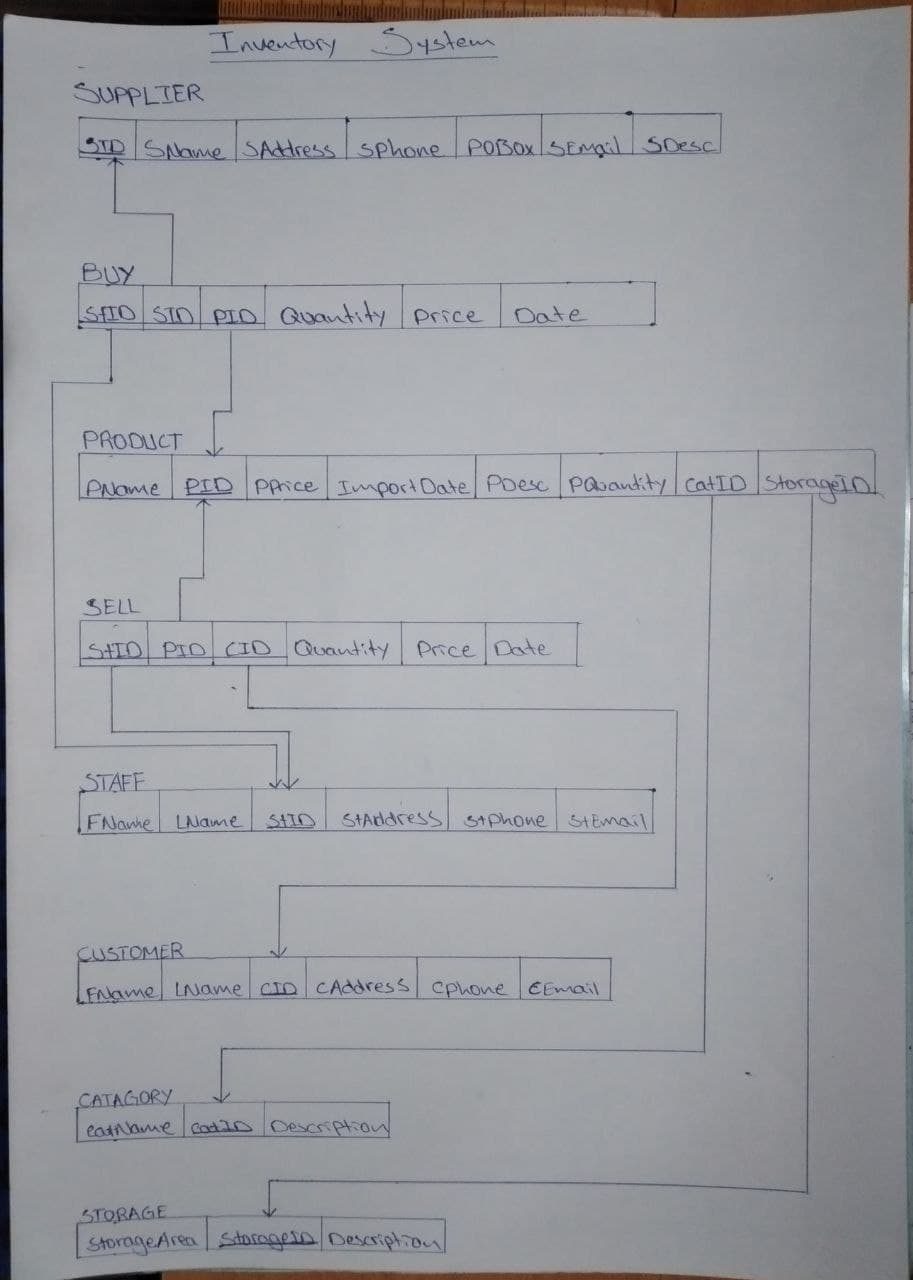 Inventory System
SUPPLIER
SID SName SAddress SPhone POBox SEmail SDesc
BUY
StID SID PID Quantity Price Date
PRODUCT
PName PID PPrice ImportDate PDesc PQuantity CatID StorageID
SELL
StID PID CID Quantity Price Date
STAFF
FName LName StID StAddress StPhone StEmail
CUSTOMER
FName LName CID CAddress CPhone CEmail
CATAGORY
CatName CatID Description
STORAGE
StorageArea StorageID Description